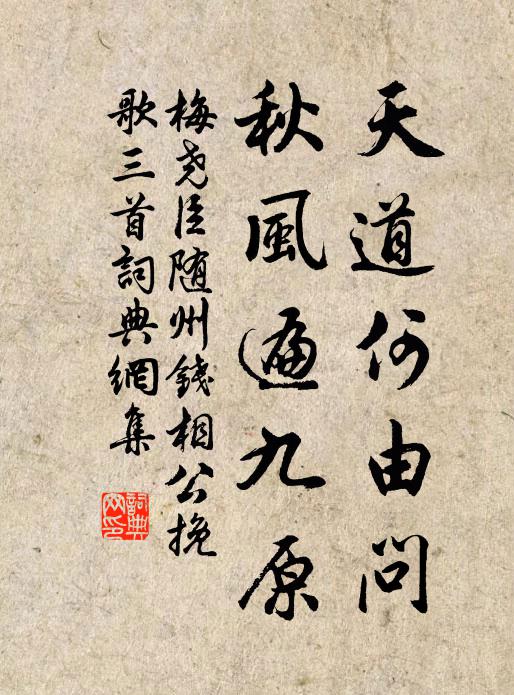 天道何由問
秋風遍九原
梅堯臣隨州錢相公挽
歌三首詞典網集
詞典網印